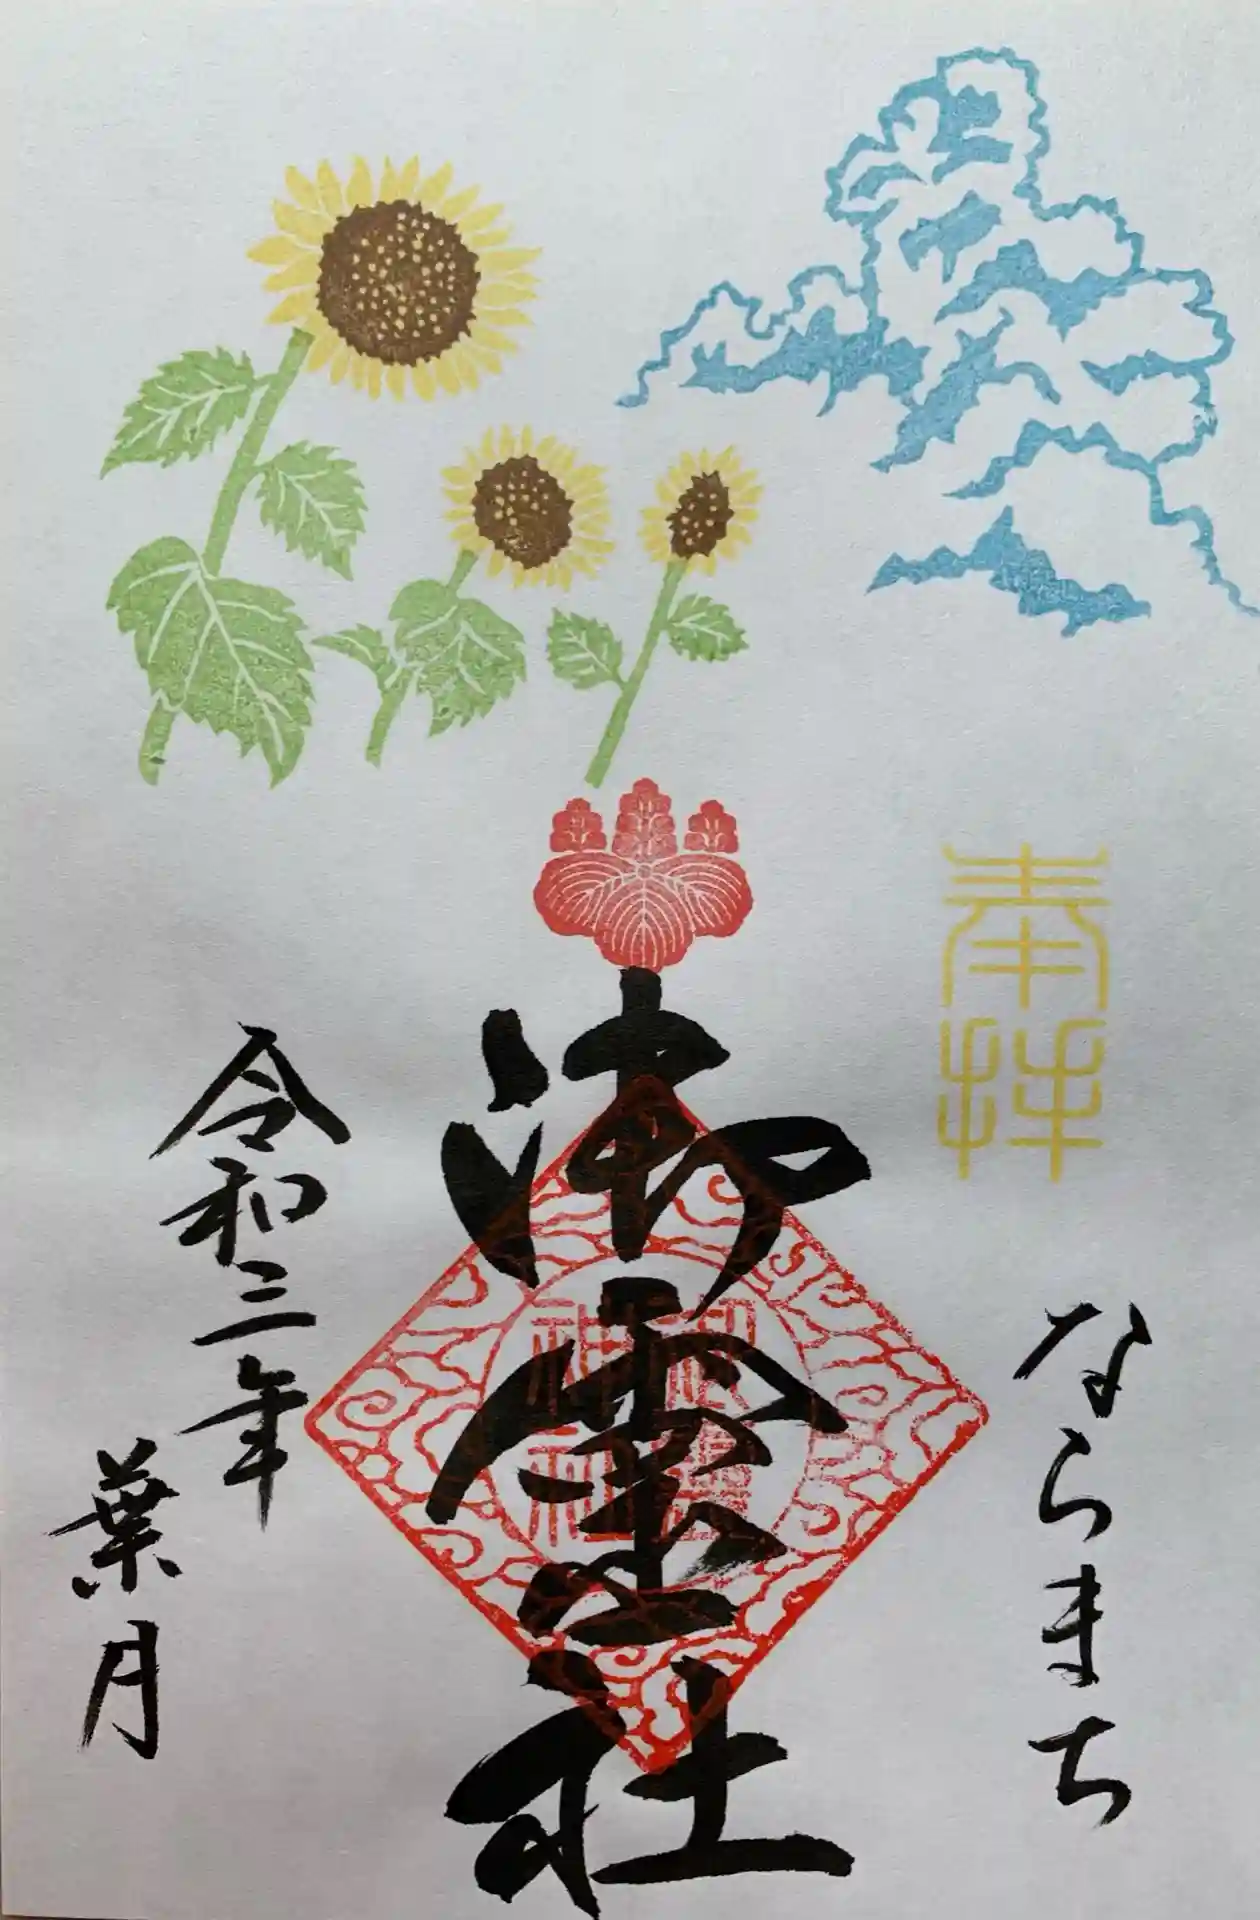 奉拝
ならまち
御霊社
御霊神社
令和三年
葉月